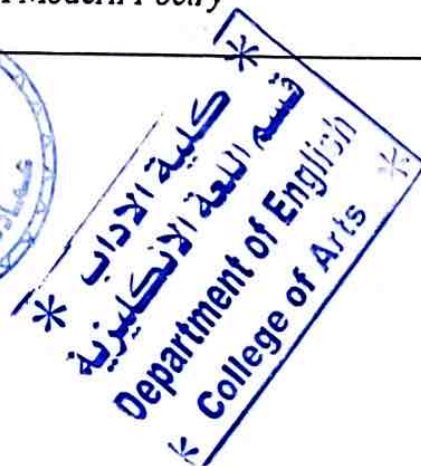 Modern Poetry
كلية الاداب
قسم اللغة الانكليزية
Department of English
College of Arts